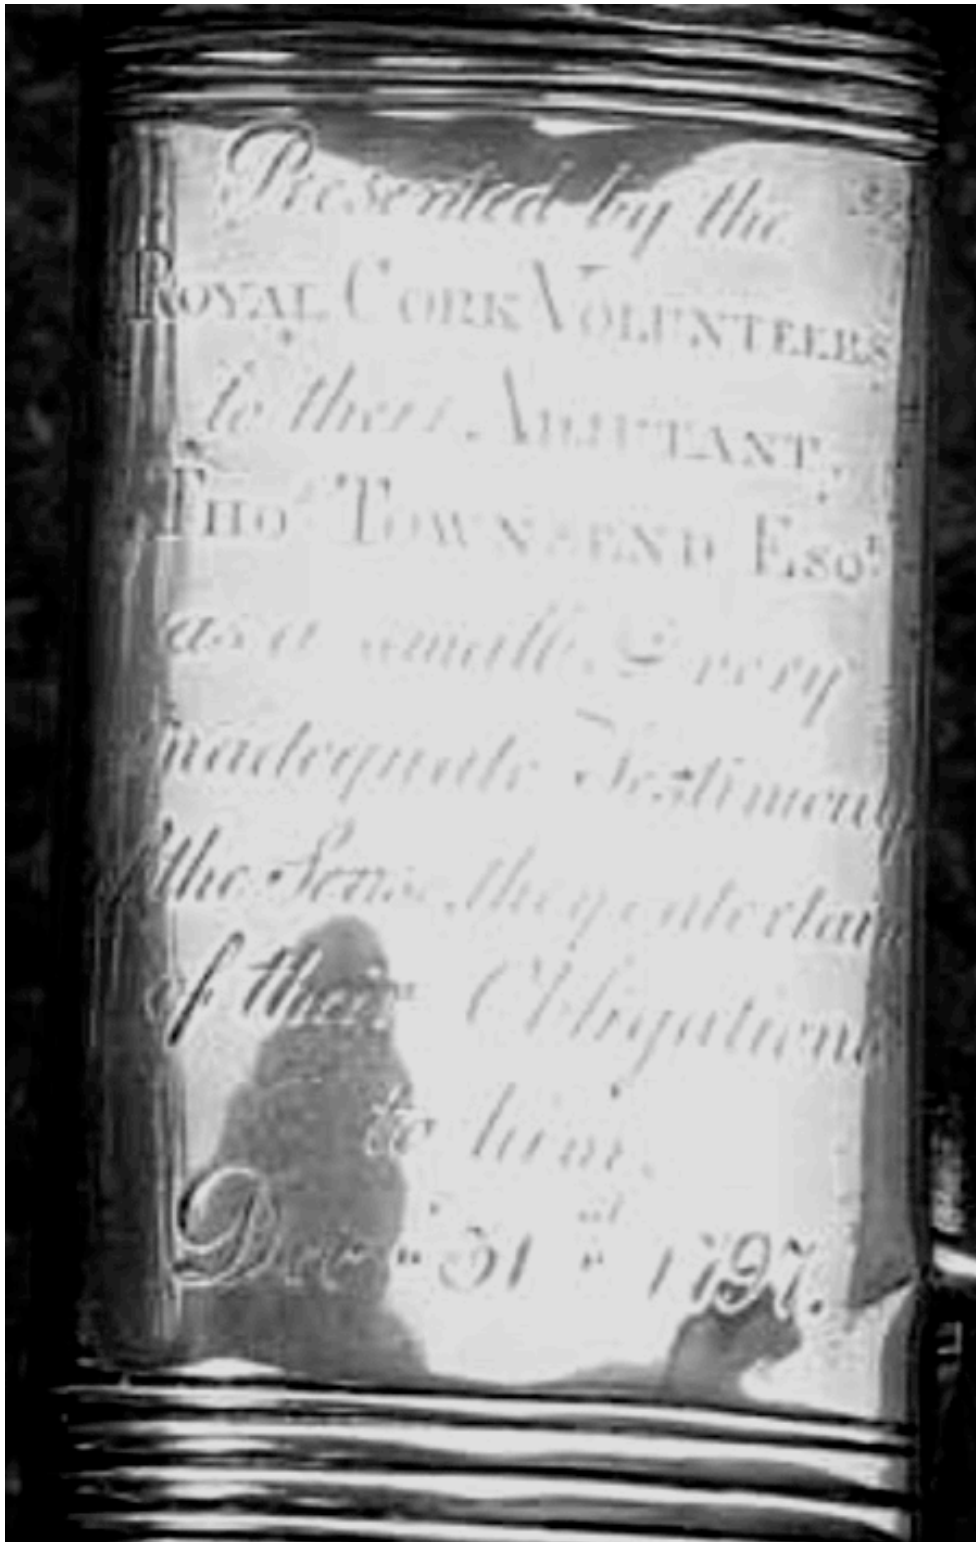 Presented by the
ROYAL CORK VOLUNTEERS
to their ADJUTANT,
THOˢ TOWNSEND ESQʳ
as a small & very
inadequate Testimony
of the Sense they entertain
of their Obligations
to him.
Decʳ 31ˢᵗ 1797.